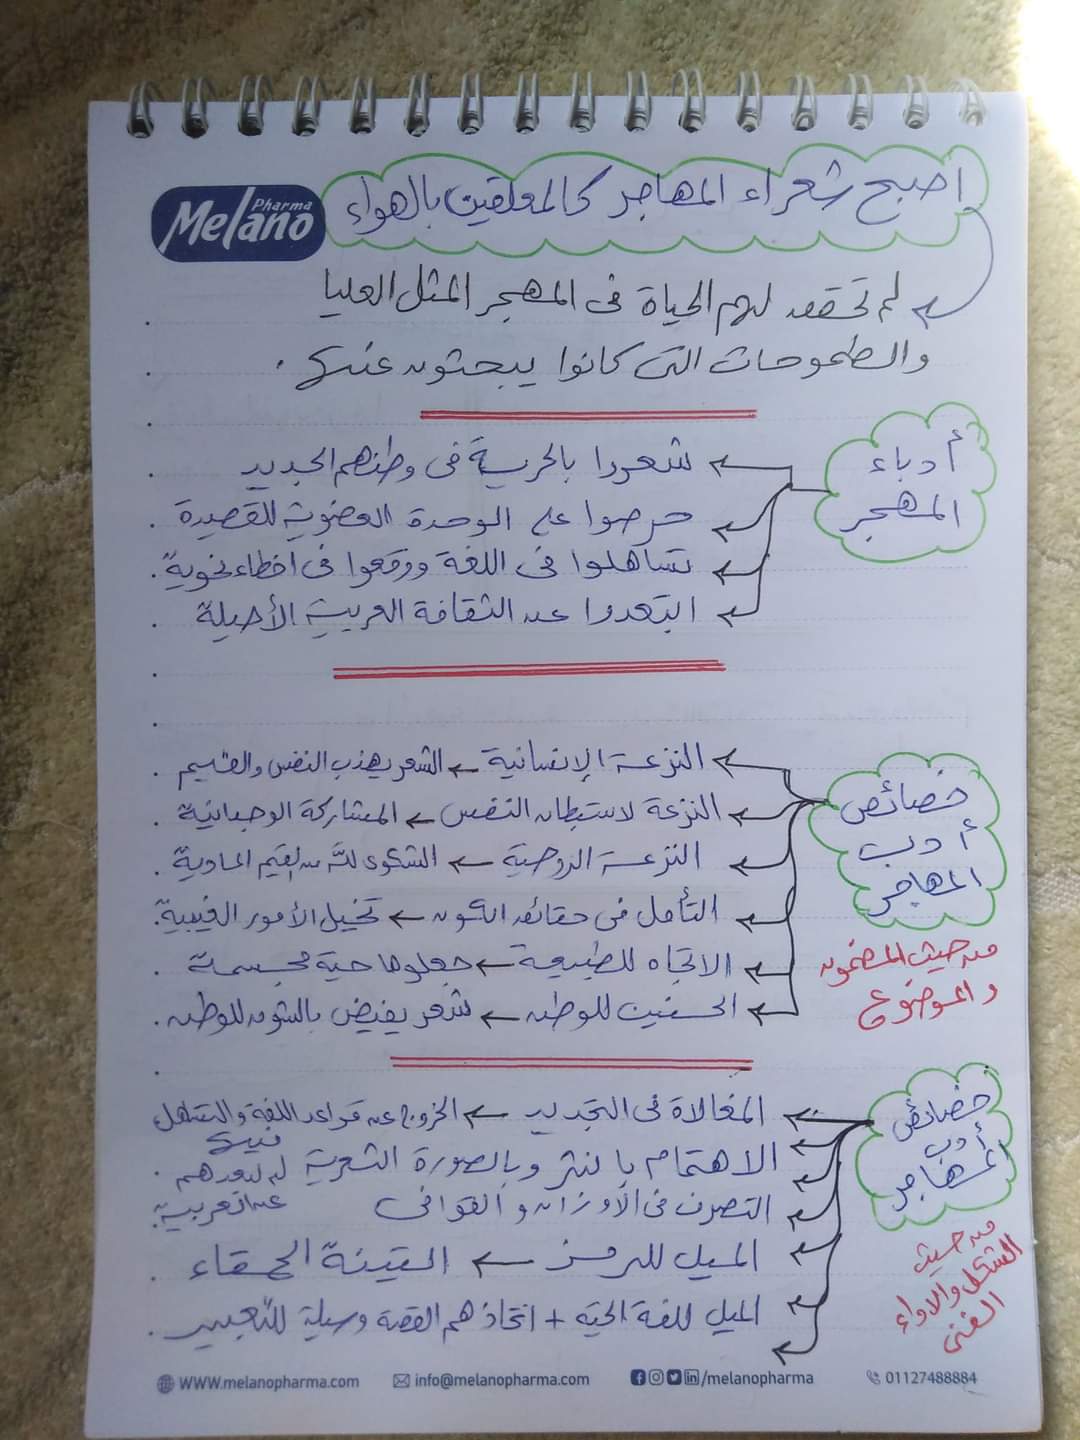 Melano Pharma
اصبح شعراء المهاجر كالمعلقين بالهواء
لم تحقق لهم الحياة فى المهجر المثل العليا
والطموحات التى كانوا يبحثون عنها .
أدباء
المهجر
شعروا بالحرية فى وطنهم الجديد
حرصوا على الوحدة العضوية للقصيدة
تساهلوا فى اللغة ووقعوا فى اخطاء نحوية
ابتعدوا عن الثقافة العربية الأصيلة
خصائص
أدب
المهاجر
من حيث المضمون
والموضوع
النزعة الإنسانية ← الشعر يهذب النفس والقيم
النزعة لاستبطان النفس ← المشاركة الوجدانية
النزعة الروحية ← الشكوى لله من القيم المادية
التأمل فى حقائق الكون ← تخيل الأمور الغيبية
الاتجاه للطبيعة ← جعلوها حية مجسمة
الحنين للوطن ← شعر يفيض بالشوق للوطن
خصائص
أدب
المهاجر
من حيث
الشكل والاداء
الفنى
المغالاة فى التجديد ← الخروج عن قواعد اللغة والتساهل
فيها
الاهتمام بالنثر وبالصورة الشعرية
لبعدهم
عن العربية
التصرف فى الأوزان والقوافى
الميل للرمز ← التينة الحمقاء
الميل للغة الحية + اتخاذهم القصة وسيلة للتعبير
WWW.melanopharma.com info@melanopharma.com /melanopharma 01127488884